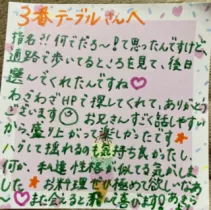 3番テーブルさんへ
指名!! 何でだろ〜!て思ったんですけど、
通路で歩いてるところを見て、後日
選んでくれたんですね
わざわざHPで探してくれて、ありがとう
ございます お兄さんすごく話しやすい
から盛り上がって楽しかったです
ハグして揺れるのも気持ち良かったし、
何か私達性格が似てる気がしま
した お料理ぜひ極めて欲しいなあ
〜 また会えると